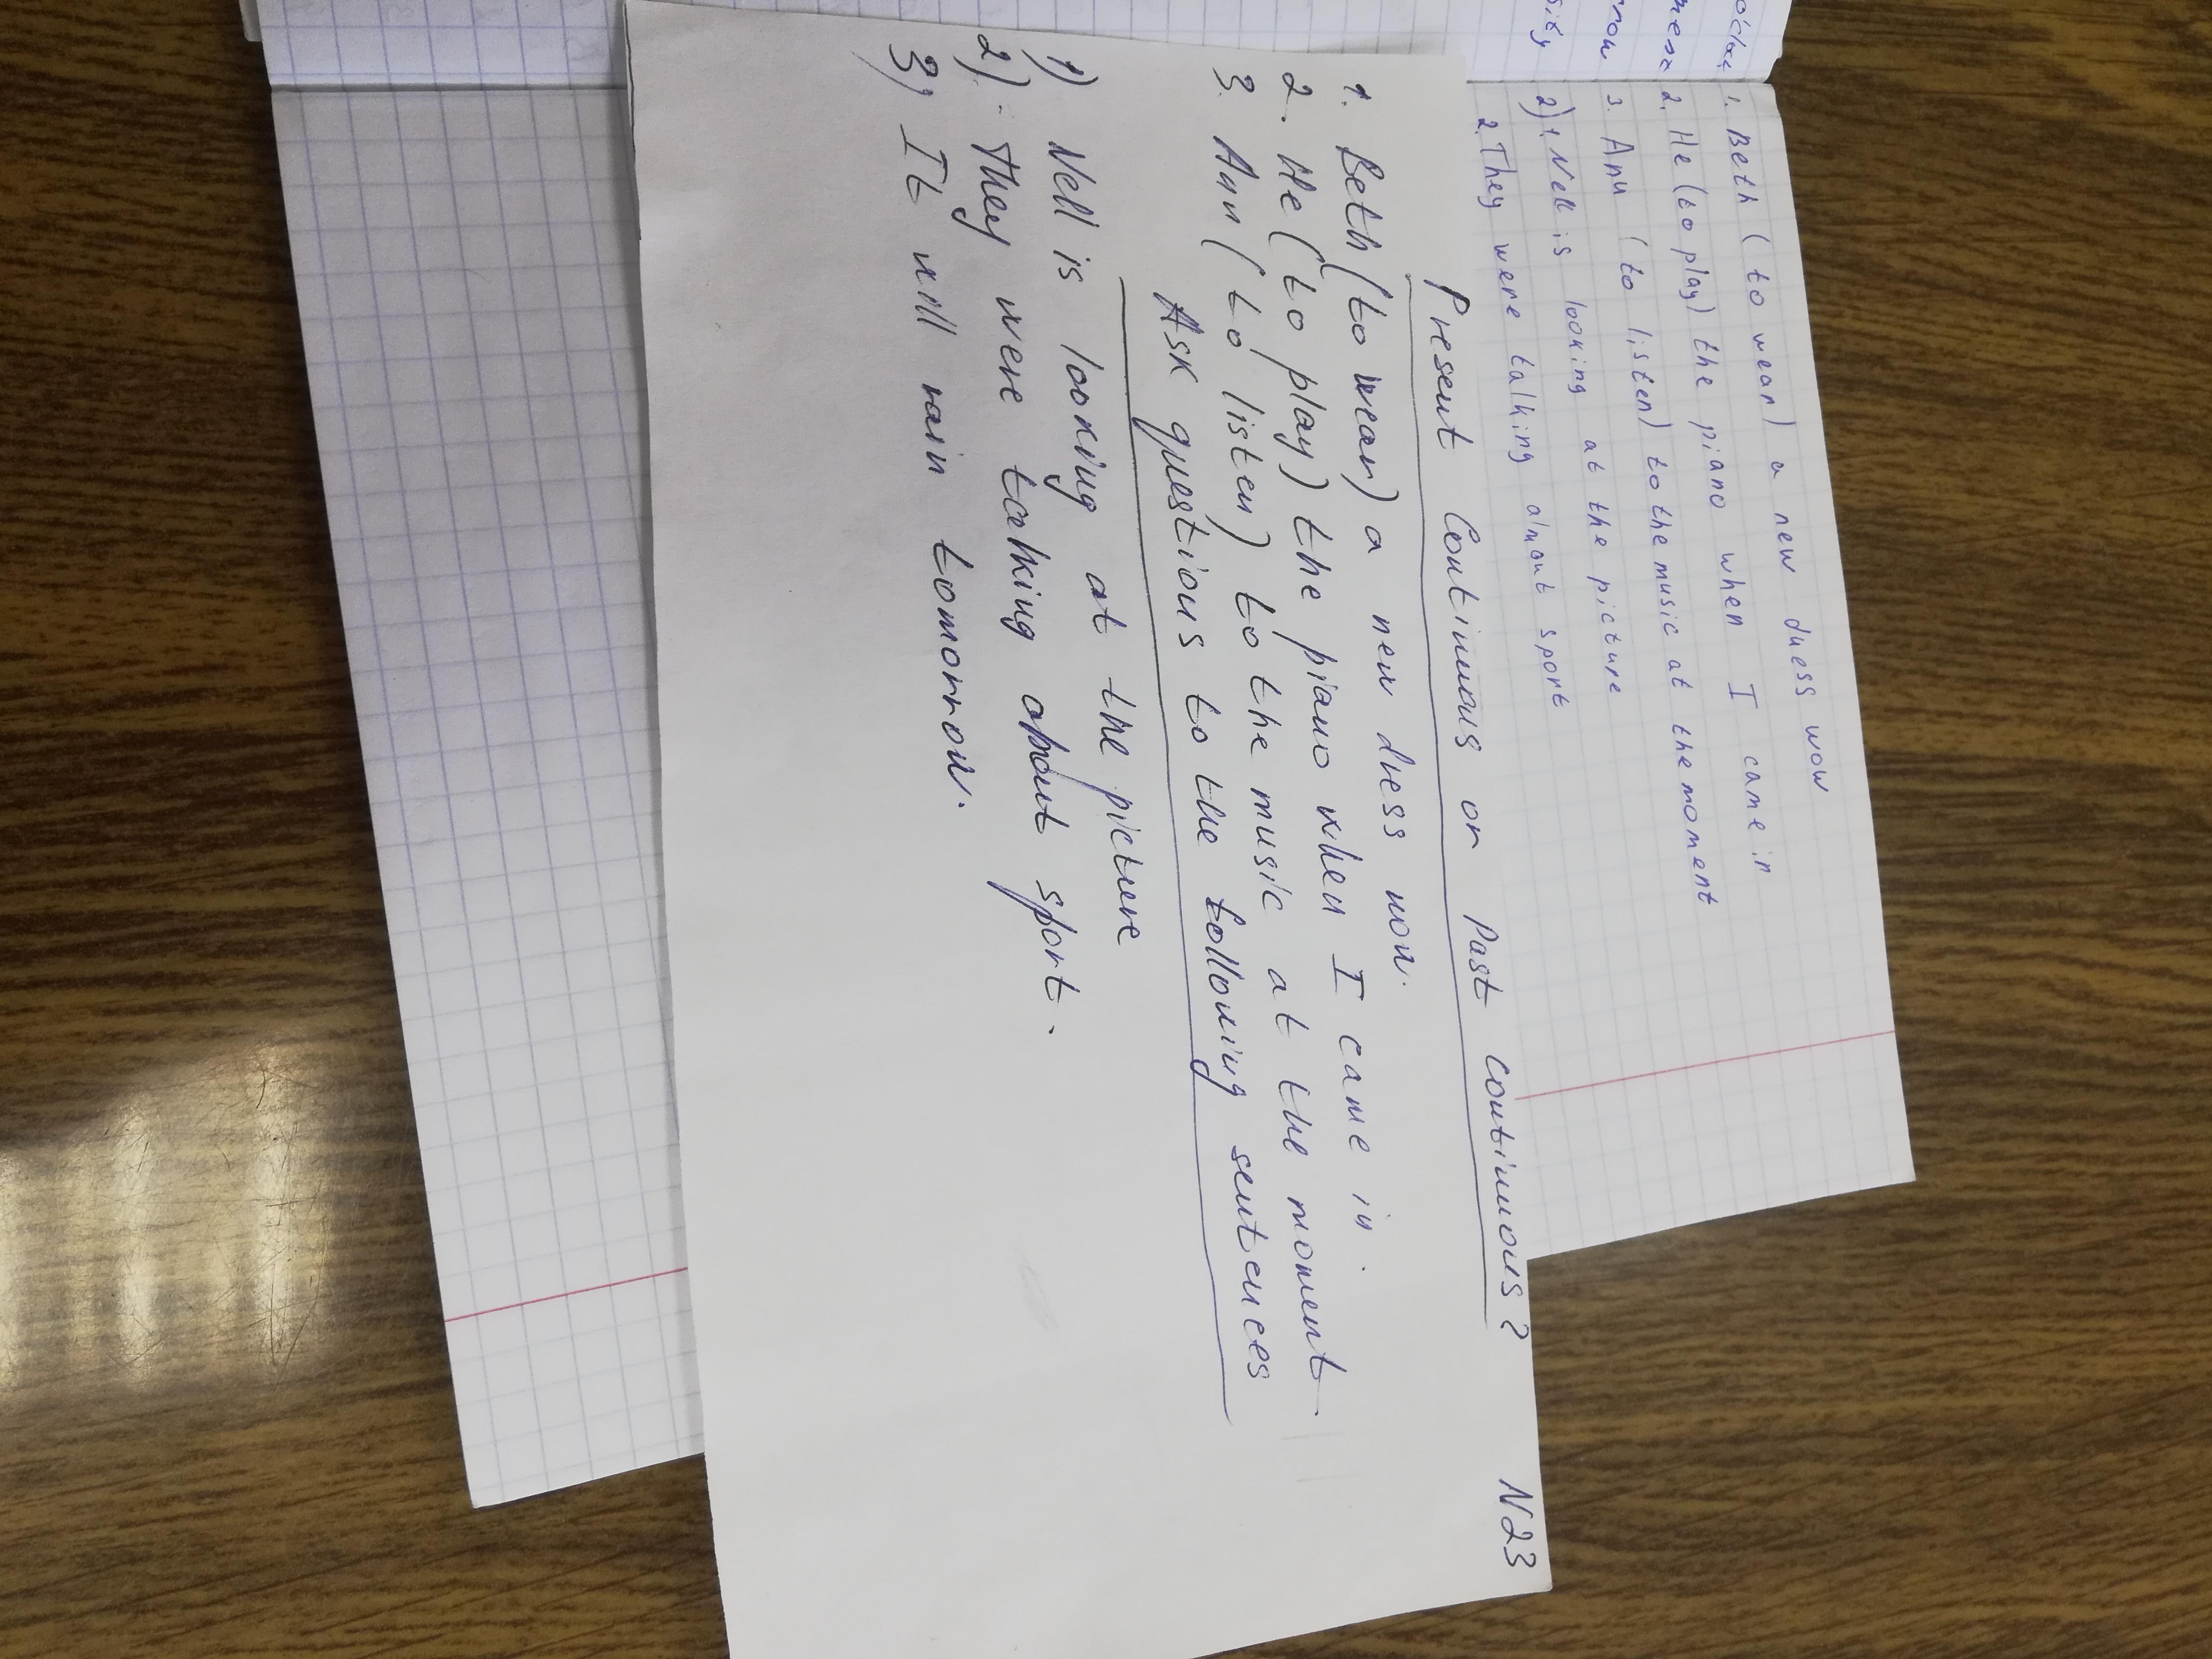 o'clock
1. Beth (to wear) a new duess wow
2. He (to play) the piano when I came in
3. Ann (to listen) to the music at the moment
2) 1. Nell is looking at the picture
2. They were talking almont sport
N23
Present Continuous or Past Continuous?
1. Beth (to wear) a new dress now.
2. He (to play) the piano when I came in.
3. Ann (to listen) to the music at the moment
Ask questions to the following sentences
1) Nell is looking at the picture
2). They were talking about sport.
3) It will rain tomorrow.